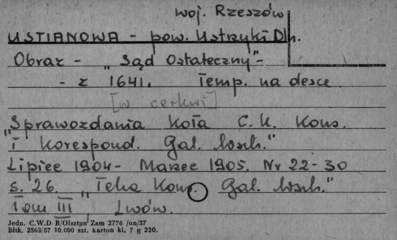 woj. Rzeszów
USTIANOWA - pow. Ustrzyki Dln.
Obraz - "Sąd Ostateczny" -
- z 1641. Temp. na desce
[w cerkwi]
"Sprawozdania Koła C.K. Kons.
i Korespond. Gal. Wsch."
Lipiec 1904 - Marzec 1905. Nr 22-30
s. 26. "Teka Kons. Gal. Wsch."
Tom III Lwów.
Jedn. C.W.D B/Olsztyn Zam 2776 /oz/57
Błtk. 2563/57 10.000 szt. karton kl. 7 g 220.